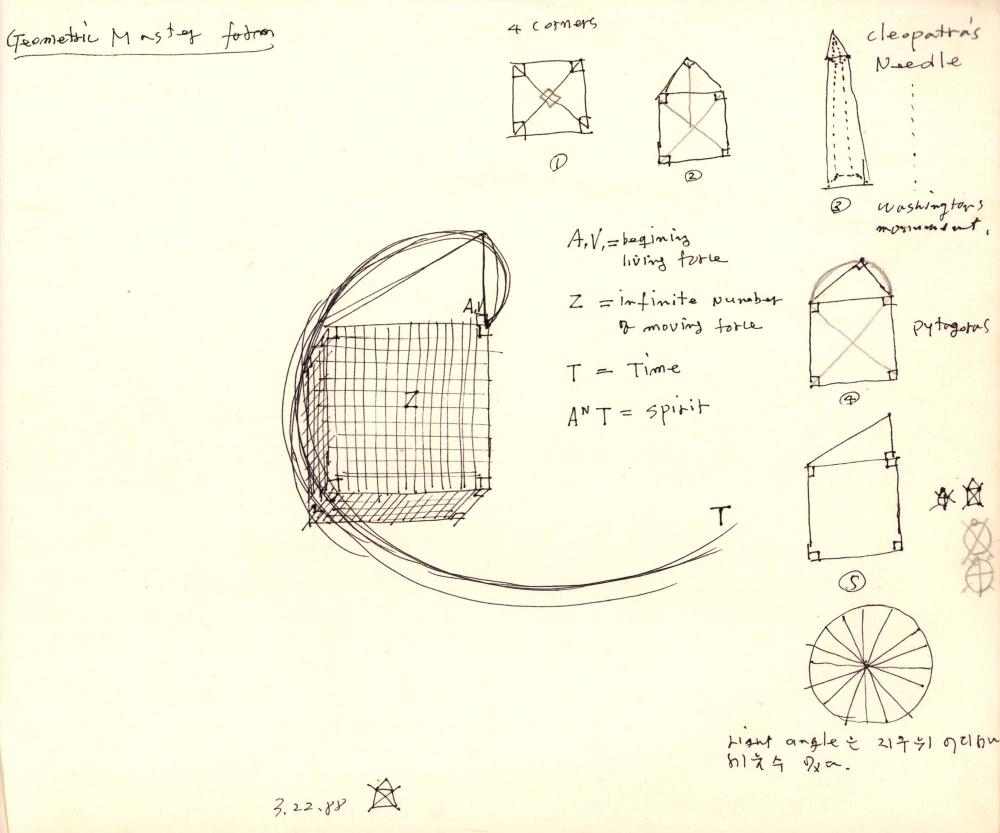 Geometric Master form
4 corners
①
②
cleopatra's
Needle
③
washington's
monument.
A.V.=begining
living force
Z = infinite number
of moving force
T = Time
Aᴺ T = spirit
A.V.
Z
T
pytagoras
④
⑤
angle 은 지구위
수
3.22.88